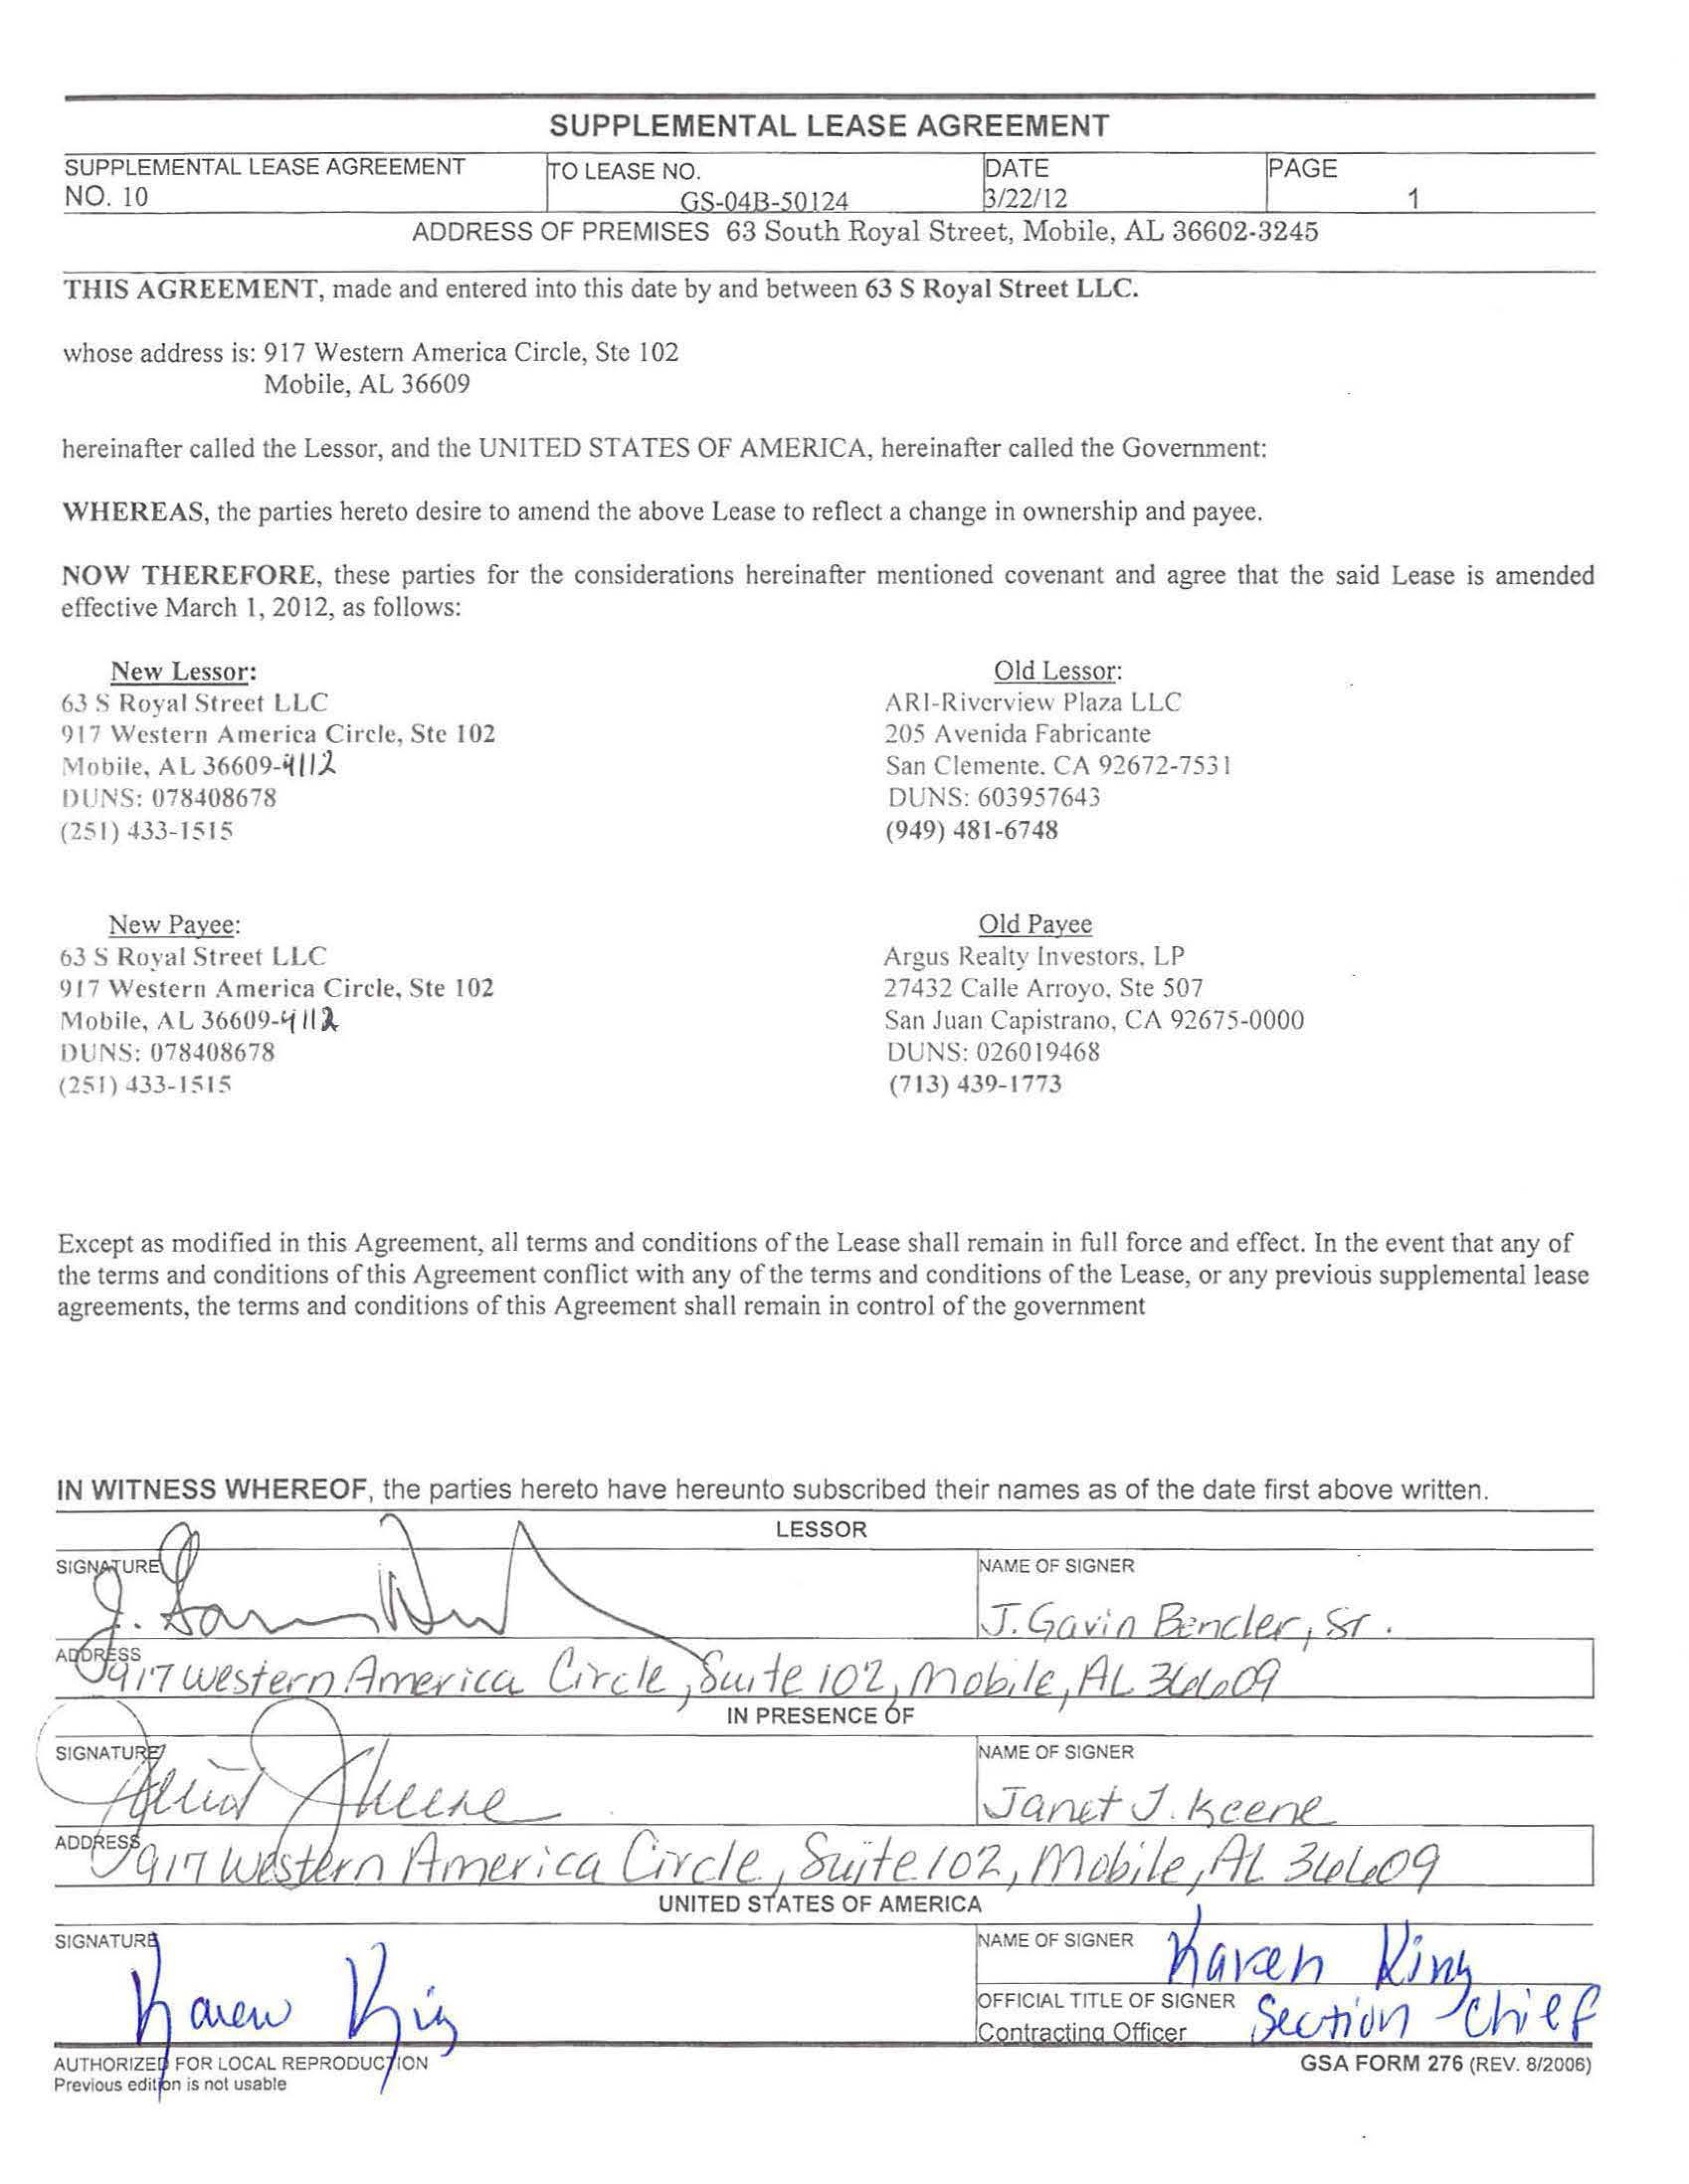 SUPPLEMENTAL LEASE AGREEMENT
SUPPLEMENTAL LEASE AGREEMENT
NO. 10
TO LEASE NO.
GS-04B-50124
DATE
3/22/12
PAGE
1
ADDRESS OF PREMISES 63 South Royal Street, Mobile, AL 36602-3245
THIS AGREEMENT, made and entered into this date by and between 63 S Royal Street LLC.
whose address is: 917 Western America Circle, Ste 102
Mobile, AL 36609
hereinafter called the Lessor, and the UNITED STATES OF AMERICA, hereinafter called the Government:
WHEREAS, the parties hereto desire to amend the above Lease to reflect a change in ownership and payee.
NOW THEREFORE, these parties for the considerations hereinafter mentioned covenant and agree that the said Lease is amended
effective March 1, 2012, as follows:
New Lessor:
63 S Royal Street LLC
917 Western America Circle, Ste 102
Mobile, AL 36609-4112
DUNS: 078408678
(251) 433-1515
Old Lessor:
ARI-Riverview Plaza LLC
205 Avenida Fabricante
San Clemente. CA 92672-7531
DUNS: 603957643
(949) 481-6748
New Payee:
63 S Royal Street LLC
917 Western America Circle, Ste 102
Mobile, AL 36609-4112
DUNS: 078408678
(251) 433-1515
Old Payee
Argus Realty Investors, LP
27432 Calle Arroyo, Ste 507
San Juan Capistrano, CA 92675-0000
DUNS: 026019468
(713) 439-1773
Except as modified in this Agreement, all terms and conditions of the Lease shall remain in full force and effect. In the event that any of
the terms and conditions of this Agreement conflict with any of the terms and conditions of the Lease, or any previous supplemental lease
agreements, the terms and conditions of this Agreement shall remain in control of the government
IN WITNESS WHEREOF, the parties hereto have hereunto subscribed their names as of the date first above written.
LESSOR
SIGNATURE
NAME OF SIGNER
J. Gavin Bender, Sr.
ADDRESS
917 Western America Circle, Suite 102, Mobile, AL 36609
IN PRESENCE OF
SIGNATURE
Janet J Keene
NAME OF SIGNER
Janet J. Keene
ADDRESS
917 Western America Circle, Suite 102, Mobile, AL 36609
UNITED STATES OF AMERICA
SIGNATURE
Karen King
NAME OF SIGNER
Karen King
OFFICIAL TITLE OF SIGNER
Contracting Officer
Section Chief
AUTHORIZED FOR LOCAL REPRODUCTION
Previous edition is not usable
GSA FORM 276 (REV. 8/2006)